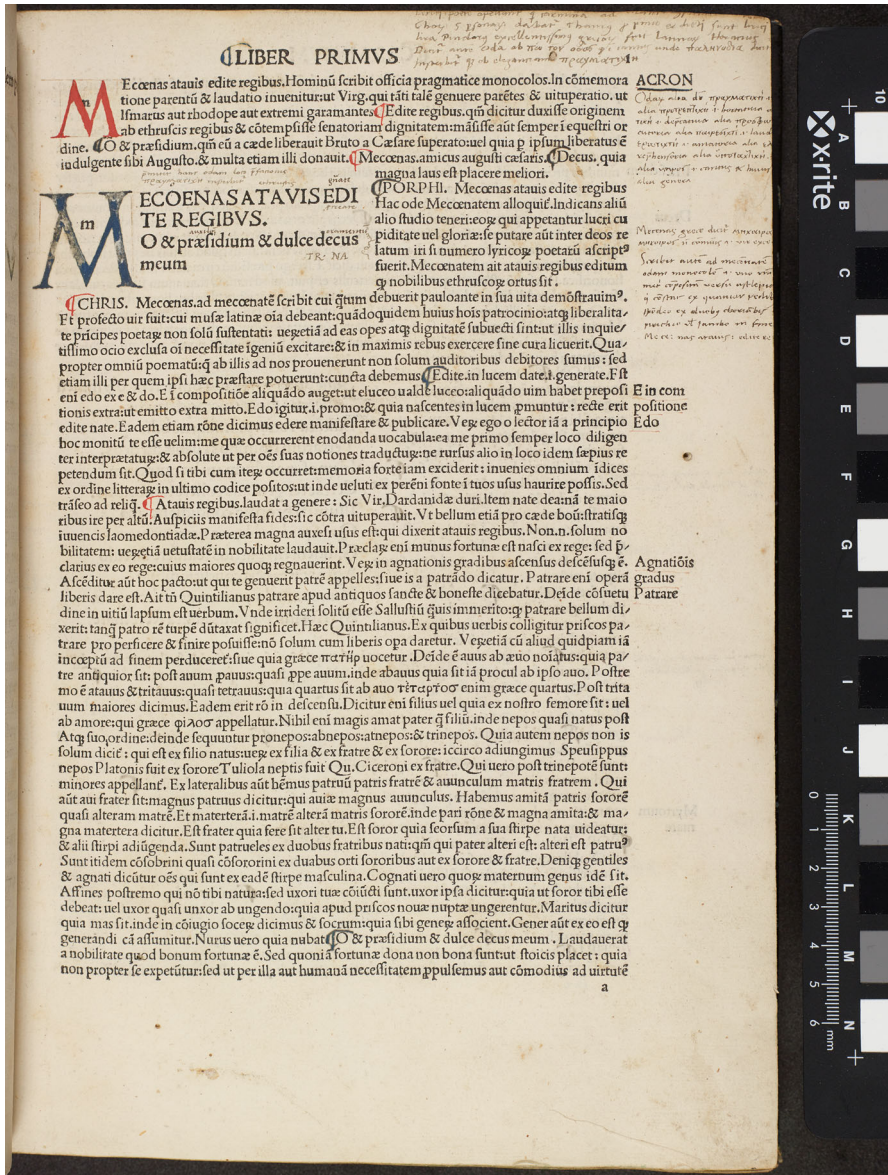 LIBER PRIMVS
1
ACRON
MEcœnas atauis edite regibus.Hominū scribit officia pragmatice monocolos.In cōmemora
tione parentū & laudatio inuenitur:ut Virg.qui tāti talē genuere parētes & uituperatio. ut
Ismarus aut rhodope aut extremi garamantes ¶Edite regibus.qm̄ dicitur duxisse originem
ab ethruscis regibus & cōtempsisse senatoriam dignitatem:māsisse aūt semper i equestri or
dine. ¶O & præsidium.qm̄ eū a cæde liberauit Bruto a Cæsare superato:uel quia p ipsum liberatus ē
indulgente sibi Augusto.& multa etiam illi donauit.¶Mecœnas.amicus augusti cæsaris.¶Decus. quia
magna laus est placere meliori.
MECOENAS ATAVIS EDI
TE REGIBVS.
O & præsidium & dulce decus
meum
¶PORPHI. Mecœnas atauis edite regibus
Hac ode Mecœnatem alloquit̄.Indicans aliū
alio studio teneri:eoꝝ qui appetantur lucri cu
piditate uel gloriæ:se putare aūt inter deos re
latum iri si numero lyricoꝝ poetarū ascriptꝰ
fuerit.Mecœnatem ait atauis regibus editum
ꝙ nobilibus ethruscoꝝ ortus sit.
¶CHRIS. Mecœnas.ad mecœnatē scribit cui q̄tum debuerit pauloante in sua uita demōstrauimꝰ.
Et profecto uir fuit:cui musæ latinæ oīa debeant:quādoquidem huius hoīs patrocinio:atꝗ liberalita-
te prīcipes poetaꝝ non solū sustentati: ueꝝetiā ad eas opes atꝗ dignitatē subuecti sint:ut illis inquie-
tissimo ocio exclusa oī necessitate īgeniū excitare:& in maximis rebus exercere sine cura licuerit.Qua-
propter omniū poematū:q̄ ab illis ad nos prouenerunt non solum auditoribus debitores sumus : sed
etiam illi per quem ipsi hæc præstare potuerunt:cuncta debemus ¶Edite.in lucem date.i.generate.Est
enī edo ex e & do.E ī compositiōe aliquādo auget:ut eluceo ualde luceo:aliquādo uim habet preposi
tionis extra:ut emitto extra mitto.Edo igitur.i.promo:& quia nascentes in lucem ꝓmuntur : recte erit
edite nate.Eadem etiam rōne dicimus edere manifestare & publicare.Veꝝ ego o lector iā a principio
hoc monitū te esse uelim:me quæ occurrerent enodanda uocabula:ea me primo semper loco diligen
ter interprætatuꝝ:& absolute ut per oēs suas notiones traductuꝝ:ne rursus alio in loco idem sæpius re
petendum sit.Quod si tibi cum iteꝝ occurret:memoria forte iam exciderit : inuenies omnium īdices
ex ordine litteraꝝ in ultimo codice positos:ut inde ueluti ex perēni fonte ī tuos usus haurire possis.Sed
trāseo ad reliq̄. ¶Atauis regibus.laudat a genere : Sic Vir.Dardanidæ duri.Item nate dea:nā te maio
ribus ire per altū.Auspiciis manifesta fides:sic cōtra uituperauit.Vt bellum etiā pro cæde boū:stratisꝗ
iuuencis laomedontiadæ.Præterea magna auxesi usus est:qui dixerit atauis regibus. Non.n.solum no
bilitatem: ueꝝetiā uetustatē in nobilitate laudauit.Præclaꝝ enī munus fortunæ est nasci ex rege: sed p̄-
clarius ex eo rege:cuius maiores quoꝗ regnauerint.Veꝝ in agnationis gradibus ascensus descēsusꝗ ē.
Ascēditur aūt hoc pacto:ut qui te genuerit patrē appelles:siue is a patrādo dicatur. Patrare enī operā
liberis dare est.Ait tn̄ Quintilianus patrare apud antiquos sancte & honeste dicebatur.Deīde cōsuetu
dine in uitiū lapsum est uerbum.Vnde irrideri solitū esse Sallustiū q̄uis immerito:ꝙ patrare bellum di-
xerit: tanq̄ patro rē turpē dūtaxat significet.Hæc Quintilianus.Ex quibus uerbis colligitur priscos pa-
trare pro perficere & finire posuisse:nō solum cum liberis opa daretur. Veꝝetiā cū aliud quidpiam iā
incœptū ad finem perduceret̄:siue quia græce πατήρ uocetur .Deīde ē auus ab æuio noīatus:quia pa-
tre antiquior sit: post auum ꝓauus:quasi ꝓpe auum.inde abauus quia sit iā procul ab ipso auo. Postre
mo ē atauus & tritauus:quasi tetrauus:quia quartus sit ab auo τέταρτοσ enim græce quartus.Post trita
uum maiores dicimus.Eadem erit rō in descensu.Dicitur enī filius uel quia ex nostro femore sit : uel
ab amore:qui græce φίλοσ appellatur.Nihil enī magis amat pater q̄ filiū.inde nepos quasi natus post
Atꝗ suo,ordine:deinde sequuntur pronepos:abnepos:atnepos:& trinepos. Quia autem nepos non is
solum dicit̄ : qui est ex filio natus:ueꝝ ex filia & ex fratre & ex sorore: iccirco adiungimus Speusippus
nepos Platonis fuit ex sorore Tuliola neptis fuit Qu.Ciceroni ex fratre.Qui uero post trinepotē sunt:
minores appellant̄. Ex lateralibus aūt hēmus patruū patris fratrē & auunculum matris fratrem . Qui
aūt aui frater sit:magnus patruus dicitur:qui auiæ magnus auunculus. Habemus amitā patris sororē
quasi alteram matrē.Et materterā.i.matrē alterā matris sororē.inde pari rōne & magna amita:& ma-
gna matertera dicitur.Est frater quia fere sit alter tu.Est soror quia seorsum a sua stirpe nata uideatur:
& alii stirpi adiūgenda.Sunt patrueles ex duobus fratribus nati:qm̄ qui pater alteri est: alteri est patruꝰ
Sunt itidem cōsobrini quasi cōsororini ex duabus orti sororibus aut ex sorore & fratre.Deniꝗ gentiles
& agnati dicūtur oēs qui sunt ex eadē stirpe masculina. Cognati uero quoꝝ maternum genus idē sit.
Affines postremo qui nō tibi natura:sed uxori tuæ cōiūcti sunt.uxor ipsa dicitur:quia ut soror tibi esse
debeat: uel uxor quasi unxor ab ungendo:quia apud priscos nouæ nuptæ ungerentur.Maritus dicitur
quia mas sit.inde in cōiugio soceꝝ dicimus & socrum:quia sibi geneꝝ associent.Gener aūt ex eo est ꝙ
generandi cā assumitur.Nurus uero quia nubat ¶O & præsidium & dulce decus meum . Laudauerat
a nobilitate quod bonum fortunæ ē.Sed quoniā fortunæ dona non bona sunt:ut stoicis placet : quia
non propter se expetūtur:sed ut per illa aut humanā necessitatem ꝓpulsemus aut cōmodius ad uirtutē
a
E in com
positione
Edo
Agnatiōis
gradus
Patrare
x-rite
10
A
B
C
D
E
F
G
H
I
J
K
L
M
N
0
1
2
3
4
5
6
mm